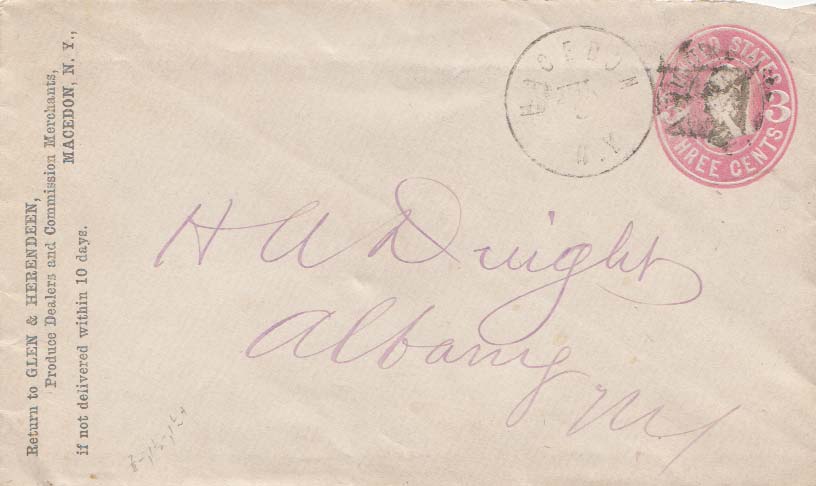 Return to GLEN & HERENDEEN,
Produce Dealers and Commission Merchants,
MACEDON, N. Y.,
if not delivered within 10 days.
MACEDON
N.Y.
UNITED STATES
3
THREE CENTS
H A Dwight
Albany
NY